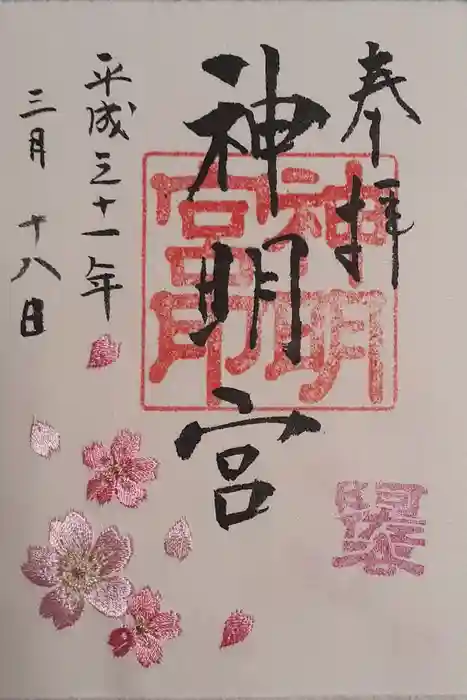 奉拝
神明宮
神明
宮印
平成三十一年
三月十八日